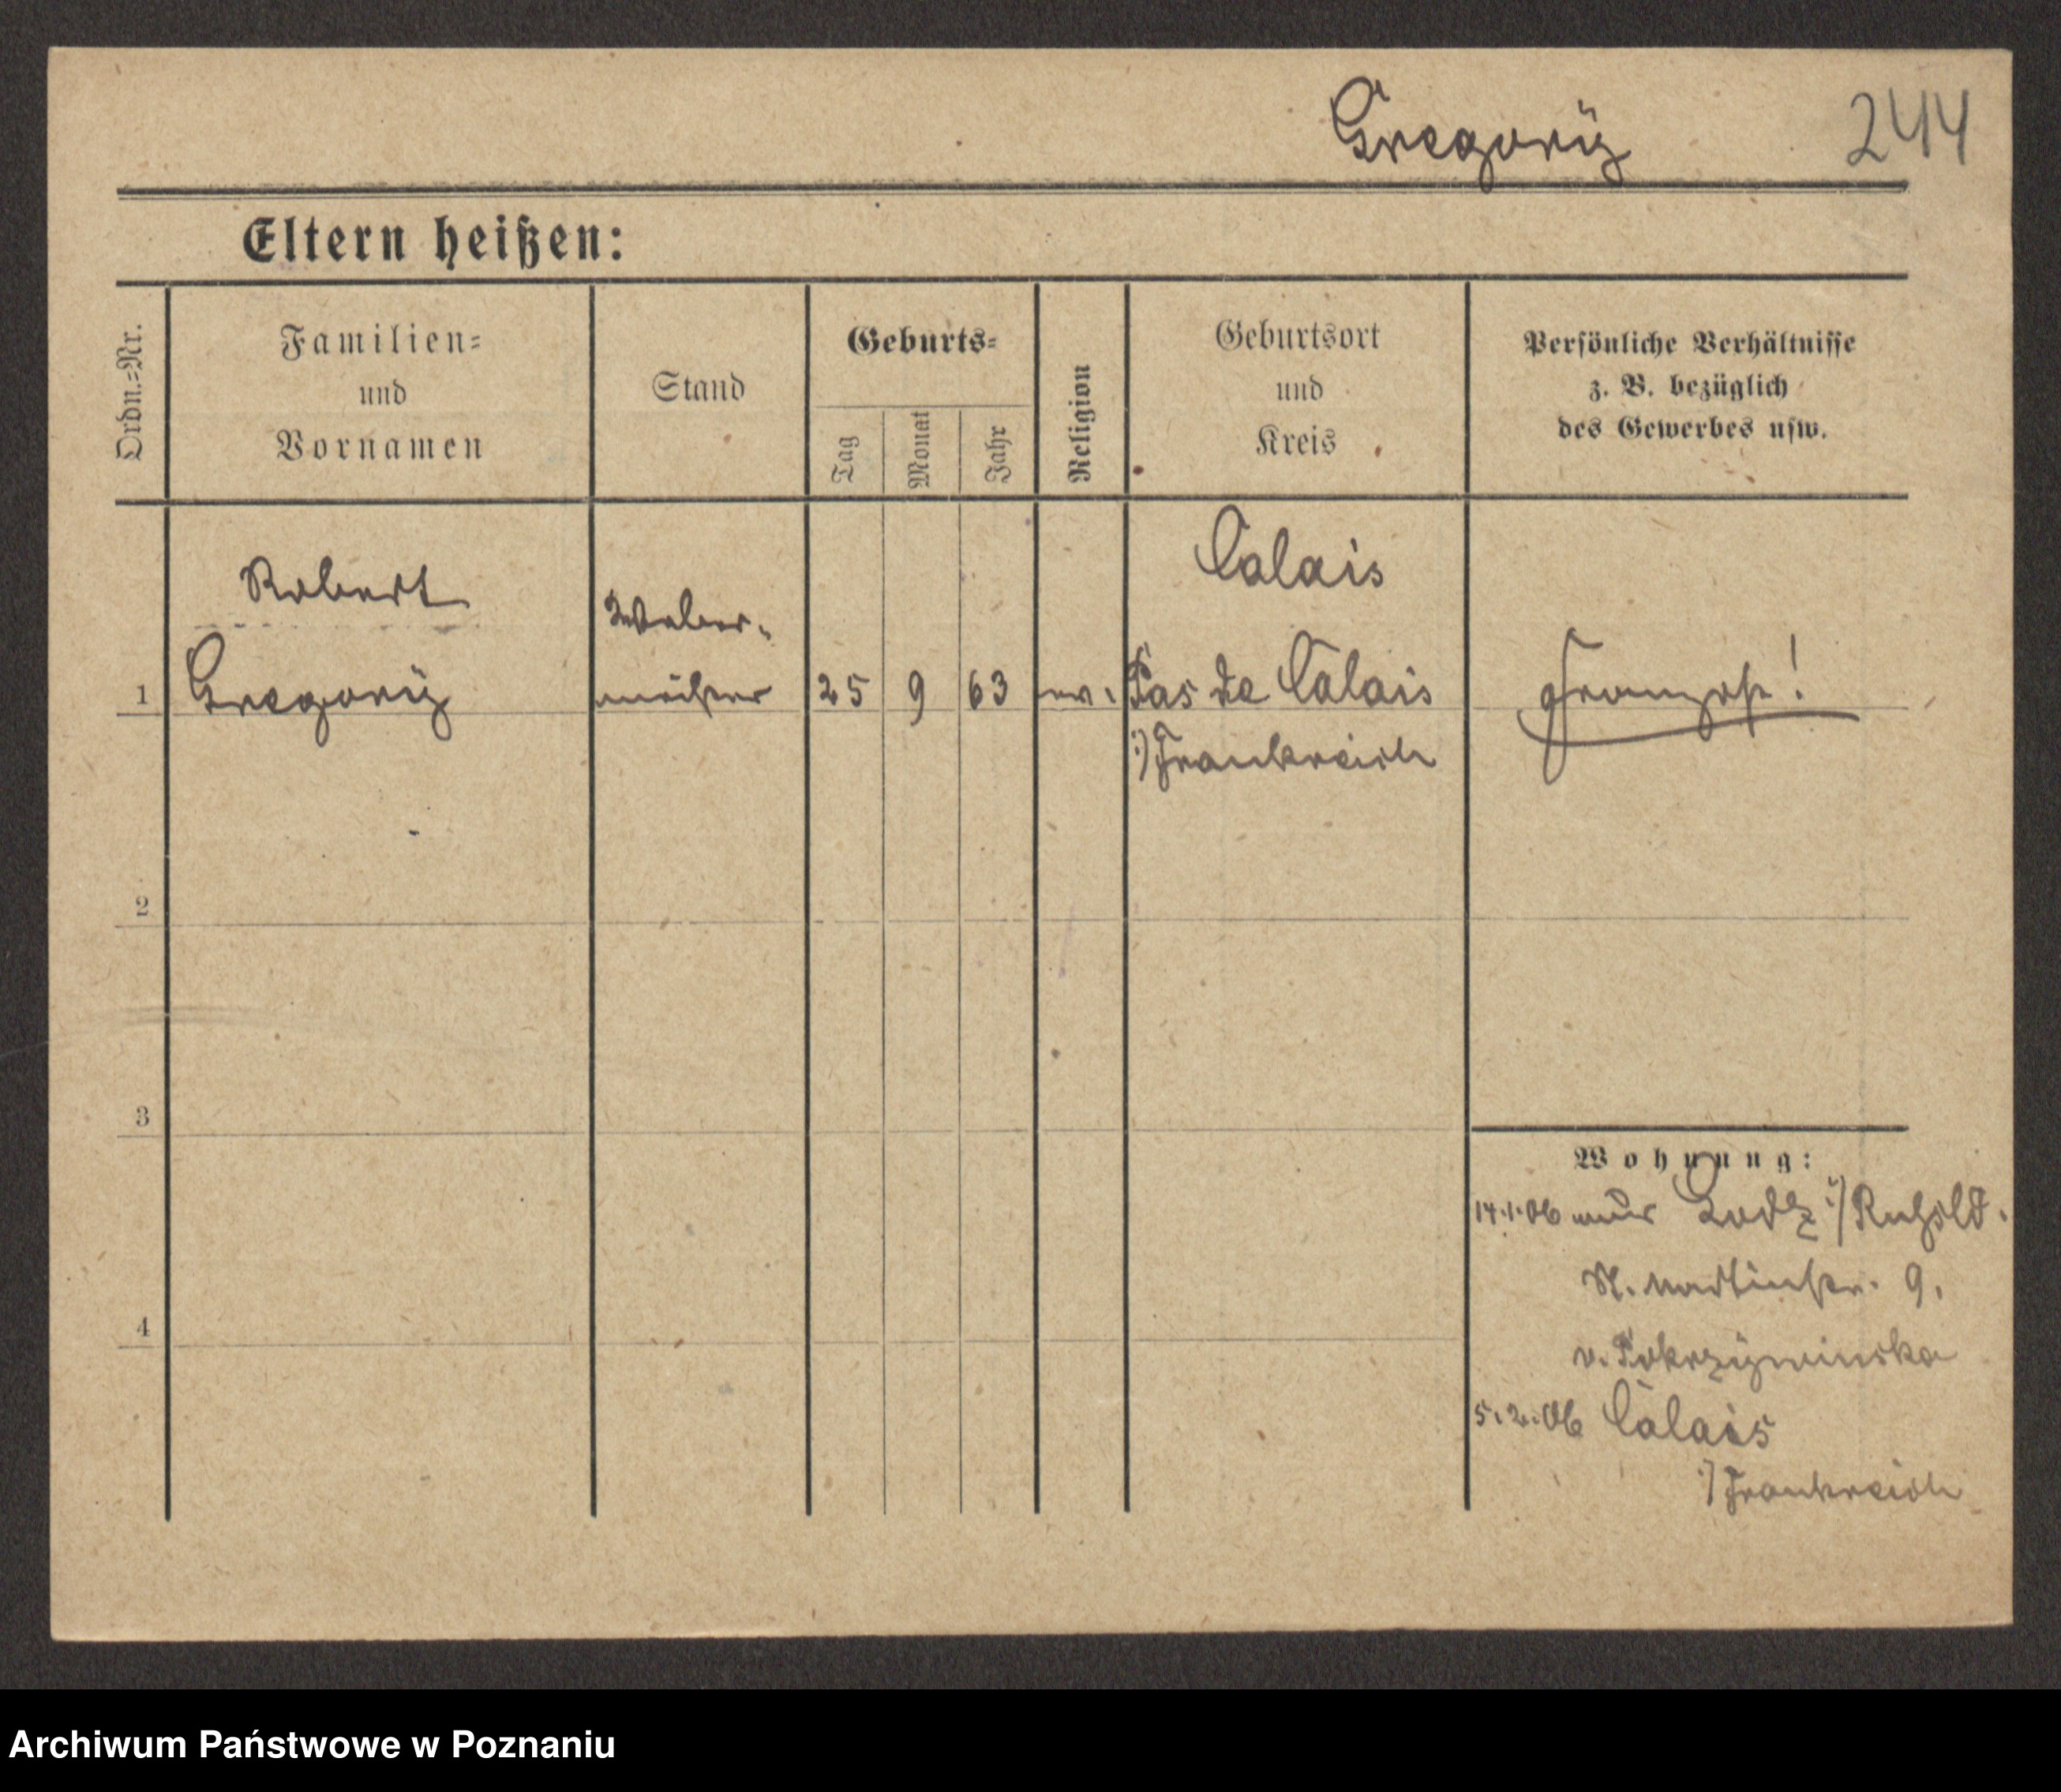 Gregorÿ 244
Eltern heißen:
Ordn.=Nr.
Familien=
und
Vornamen
Stand
Geburts=
Tag
Monat
Jahr
Religion
Geburtsort
und
Kreis
Persönliche Verhältnisse
z. B. bezüglich
des Gewerbes usw.
Robert
Gregorÿ
Weber-
meister
1 25 9 63 ev.
Calais
Pas de Calais
:/Frankreich
Franzose!
2
3
4
Wohnung:
14.1.06 aus Lodz :/Rußld.
St. Martinstr. 9.
v. Pokrzÿwinska
5.2.06 Calais
:/Frankreich
Archiwum Państwowe w Poznaniu